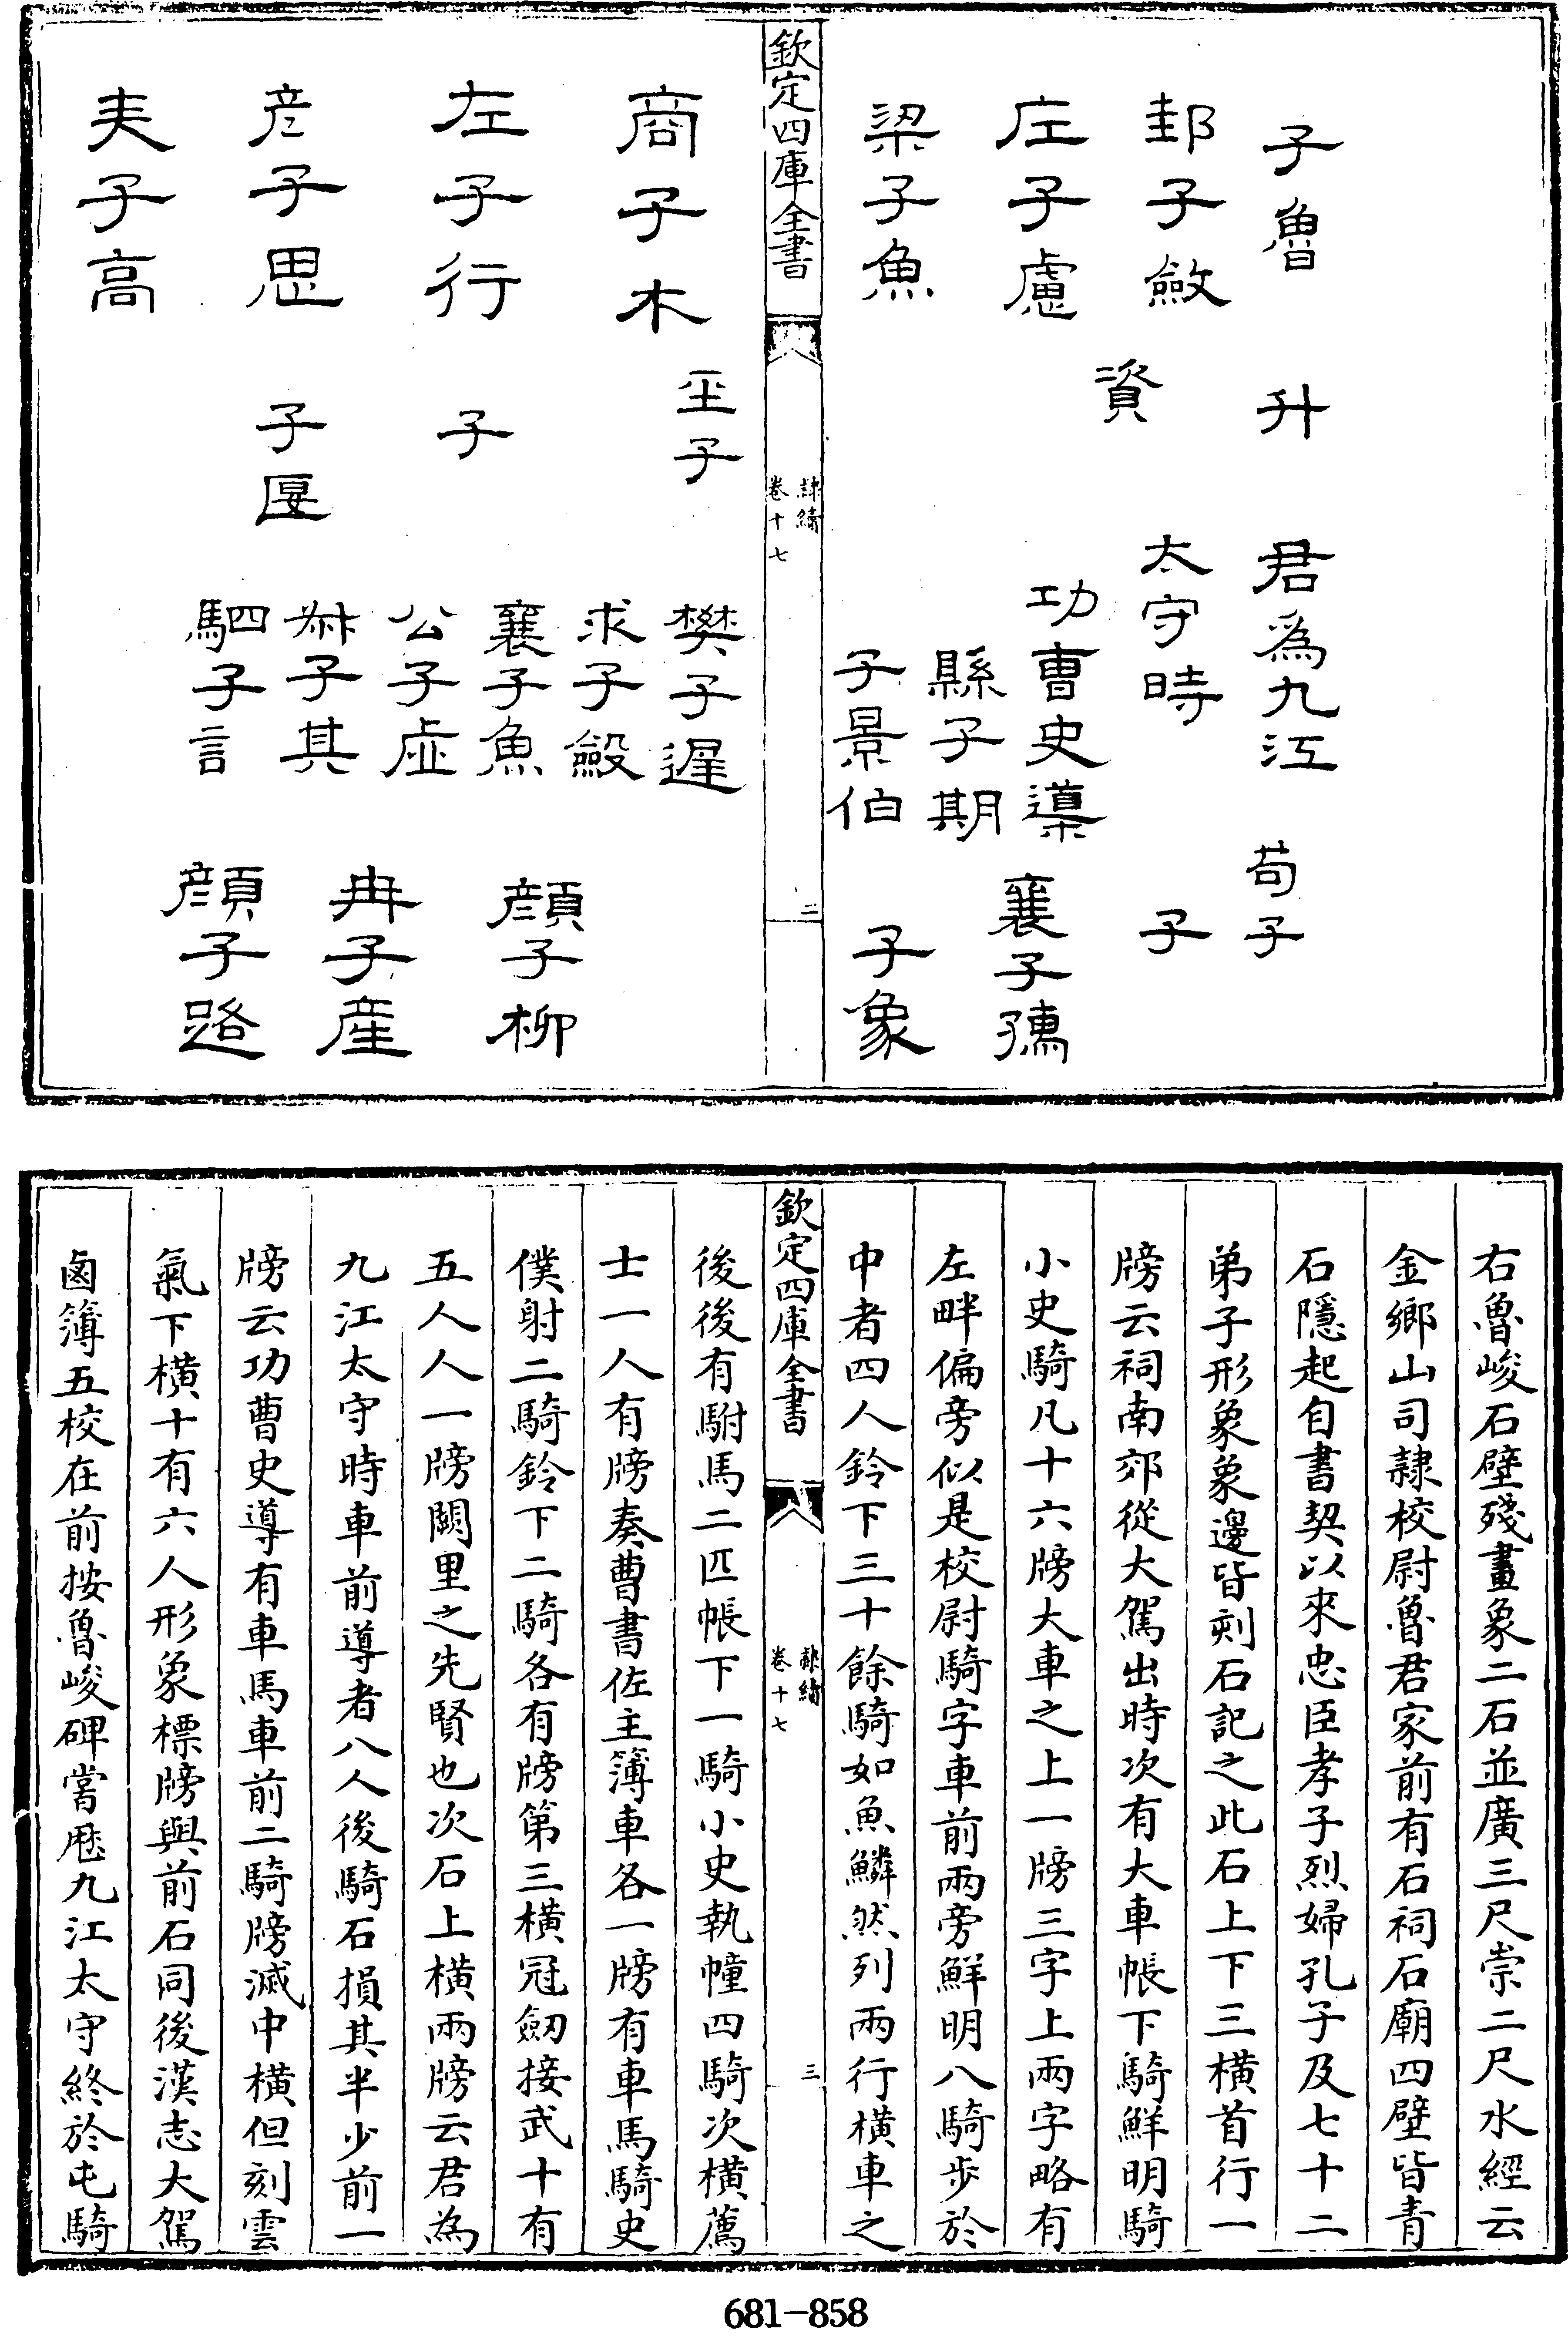 子魯　升　君為九江　苟子
邽子斂　太守時　子
資
㽵子慮　功曹史導　襄子𤣥
縣子期
梁子魚　子景伯　子象
欽定四庫全書
隸續
卷十七
二
商子木　巫子　樊子遲
求子㲉
左子行　子　襄子魚　顔子柳
公子虛
彦子思　子偃　叔子其　冉子產
駟子言　顔子路
夫子高
右魯峻石壁殘畫象二石並廣三尺崇二尺水經云
金鄉山司隸校尉魯君家前有石祠石廟四壁皆青
石隱起自書契以來忠臣孝子烈婦孔子及七十二
弟子形象象邊皆刻石記之此石上下三橫首行一
牓云祠南郊從大駕出時次有大車帳下騎鮮明騎
小史騎凡十六牓大車之上一牓三字上兩字略有
左畔偏旁似是校尉騎字車前兩旁鮮明八騎步於
中者四人鈴下三十餘騎如魚鱗然列兩行橫車之
欽定四庫全書
隸續
卷十七
三
後後有駙馬二匹帳下一騎小史執幢四騎次橫薦
士一人有牓奏曹書佐主簿車各一牓有車馬騎史
僕射二騎鈴下二騎各有牓第三橫冠劒接武十有
五人人一牓闕里之先賢也次石上橫兩牓云君為
九江太守時車前導者八人後騎石損其半少前一
牓云功曹史導有車馬車前二騎牓滅中橫但刻雲
氣下橫十有六人形象標牓與前石同後漢志大駕
鹵簿五校在前按魯峻碑嘗歷九江太守終於屯騎
681-858